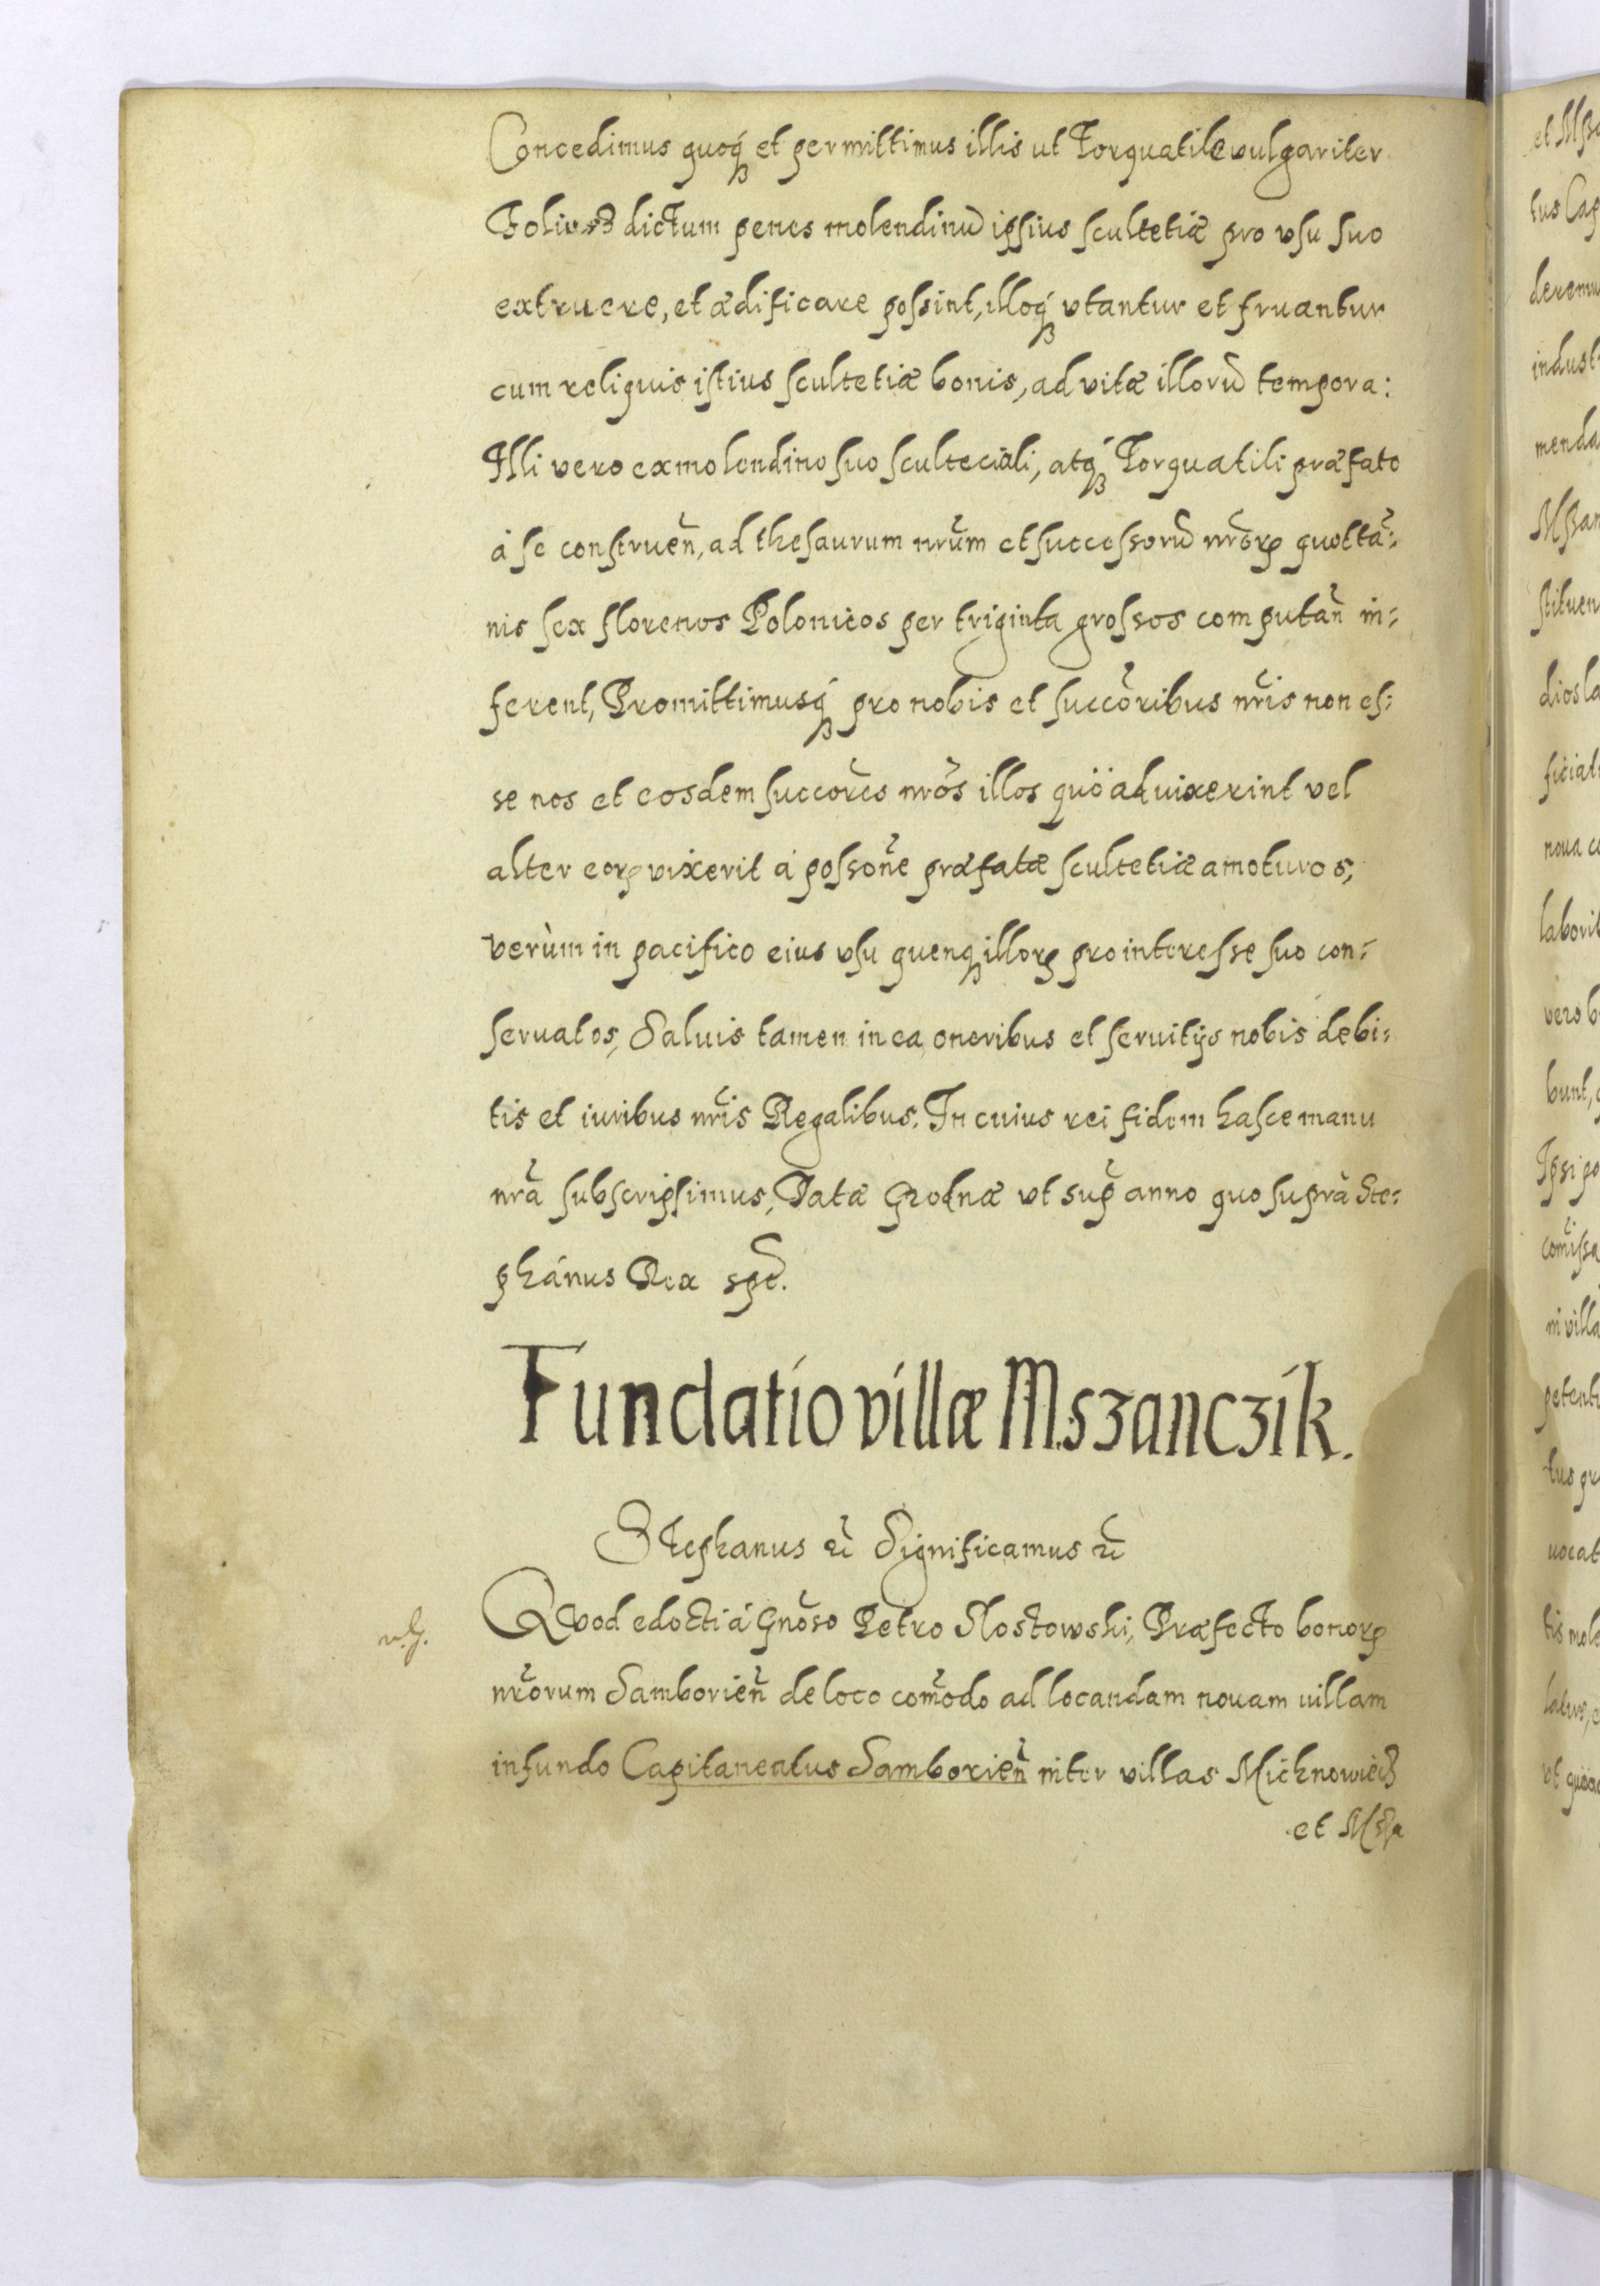 Concedimus quoq́ꝫ et permittimus illis ut Torquatile vulgariter
Foliusz dictum penes molendinũ ipsius scultetiæ pro vsu suo
extruere, et ædificare possint, illoq́ꝫ vtantur et fruantur
cum reliquis istius scultetiæ bonis, ad vitæ illorũ tempora:
Illi vero ex molendino suo sculteciali, atq́ꝫ Torquatili præfato
à se construeñ, ad thesaurum nr̃um et successorũ nr̃orꝝ quotta-
nis sex florenos Polonicos per triginta grossos computañ in-
ferent, Promittimusq́ꝫ pro nobis et succõribus nr̃is non es-
se nos et eosdem succõres nr̃os illos quöad uixerint vel
alter eorꝝ vixerit à possoñe præfatæ scultetiæ amoturos;
verùm in pacifico eius vsu quenqꝫ illorꝝ pro interesse suo con-
seruatos, Saluis tamen in ea oneribus et seruitijs nobis debi-
tis et iuribus nr̃is Regalibus. In cuius rei fidem hasce manu
nr̃a subscripsimus, Datæ Grodnæ vt sup̃ anno quo suprà Ste-
phánus Rex spt̃.
Fundatio villæ Mszanczik.
Stephanus ꝛc̃ Significamus ꝛc̃
Quod edocti à Gnõso Petro Slostowski, Præfecto bonorꝝ
nr̃orum Samborieñ de loco com̃odo ad locandam nouam uillam
in fundo Capitaneatus Samborieñ inter villas Michnowiecz
et Msza